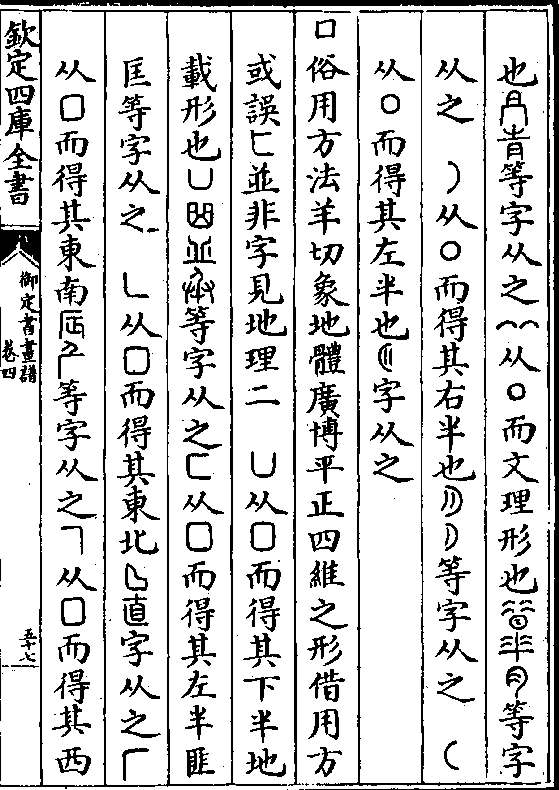 也冃青等字从之𠆢从○而文理形也等字
从之　）从○而得其右半也等字从之　（
从○而得其左半也字从之
口俗用方法羊切象地體廣博平正四維之形借用方
或誤匚並非字見地理二　凵从口而得其下半地
載形也凵𠙽並等字从之匚从口而得其左半匪
匡等字从之　𠃊从口而得其東北𠃊直字从之𠂆
从口而得其東南等字从之𠃍从口而得其西
欽定四庫全書
御定書畫譜
卷四
五十七